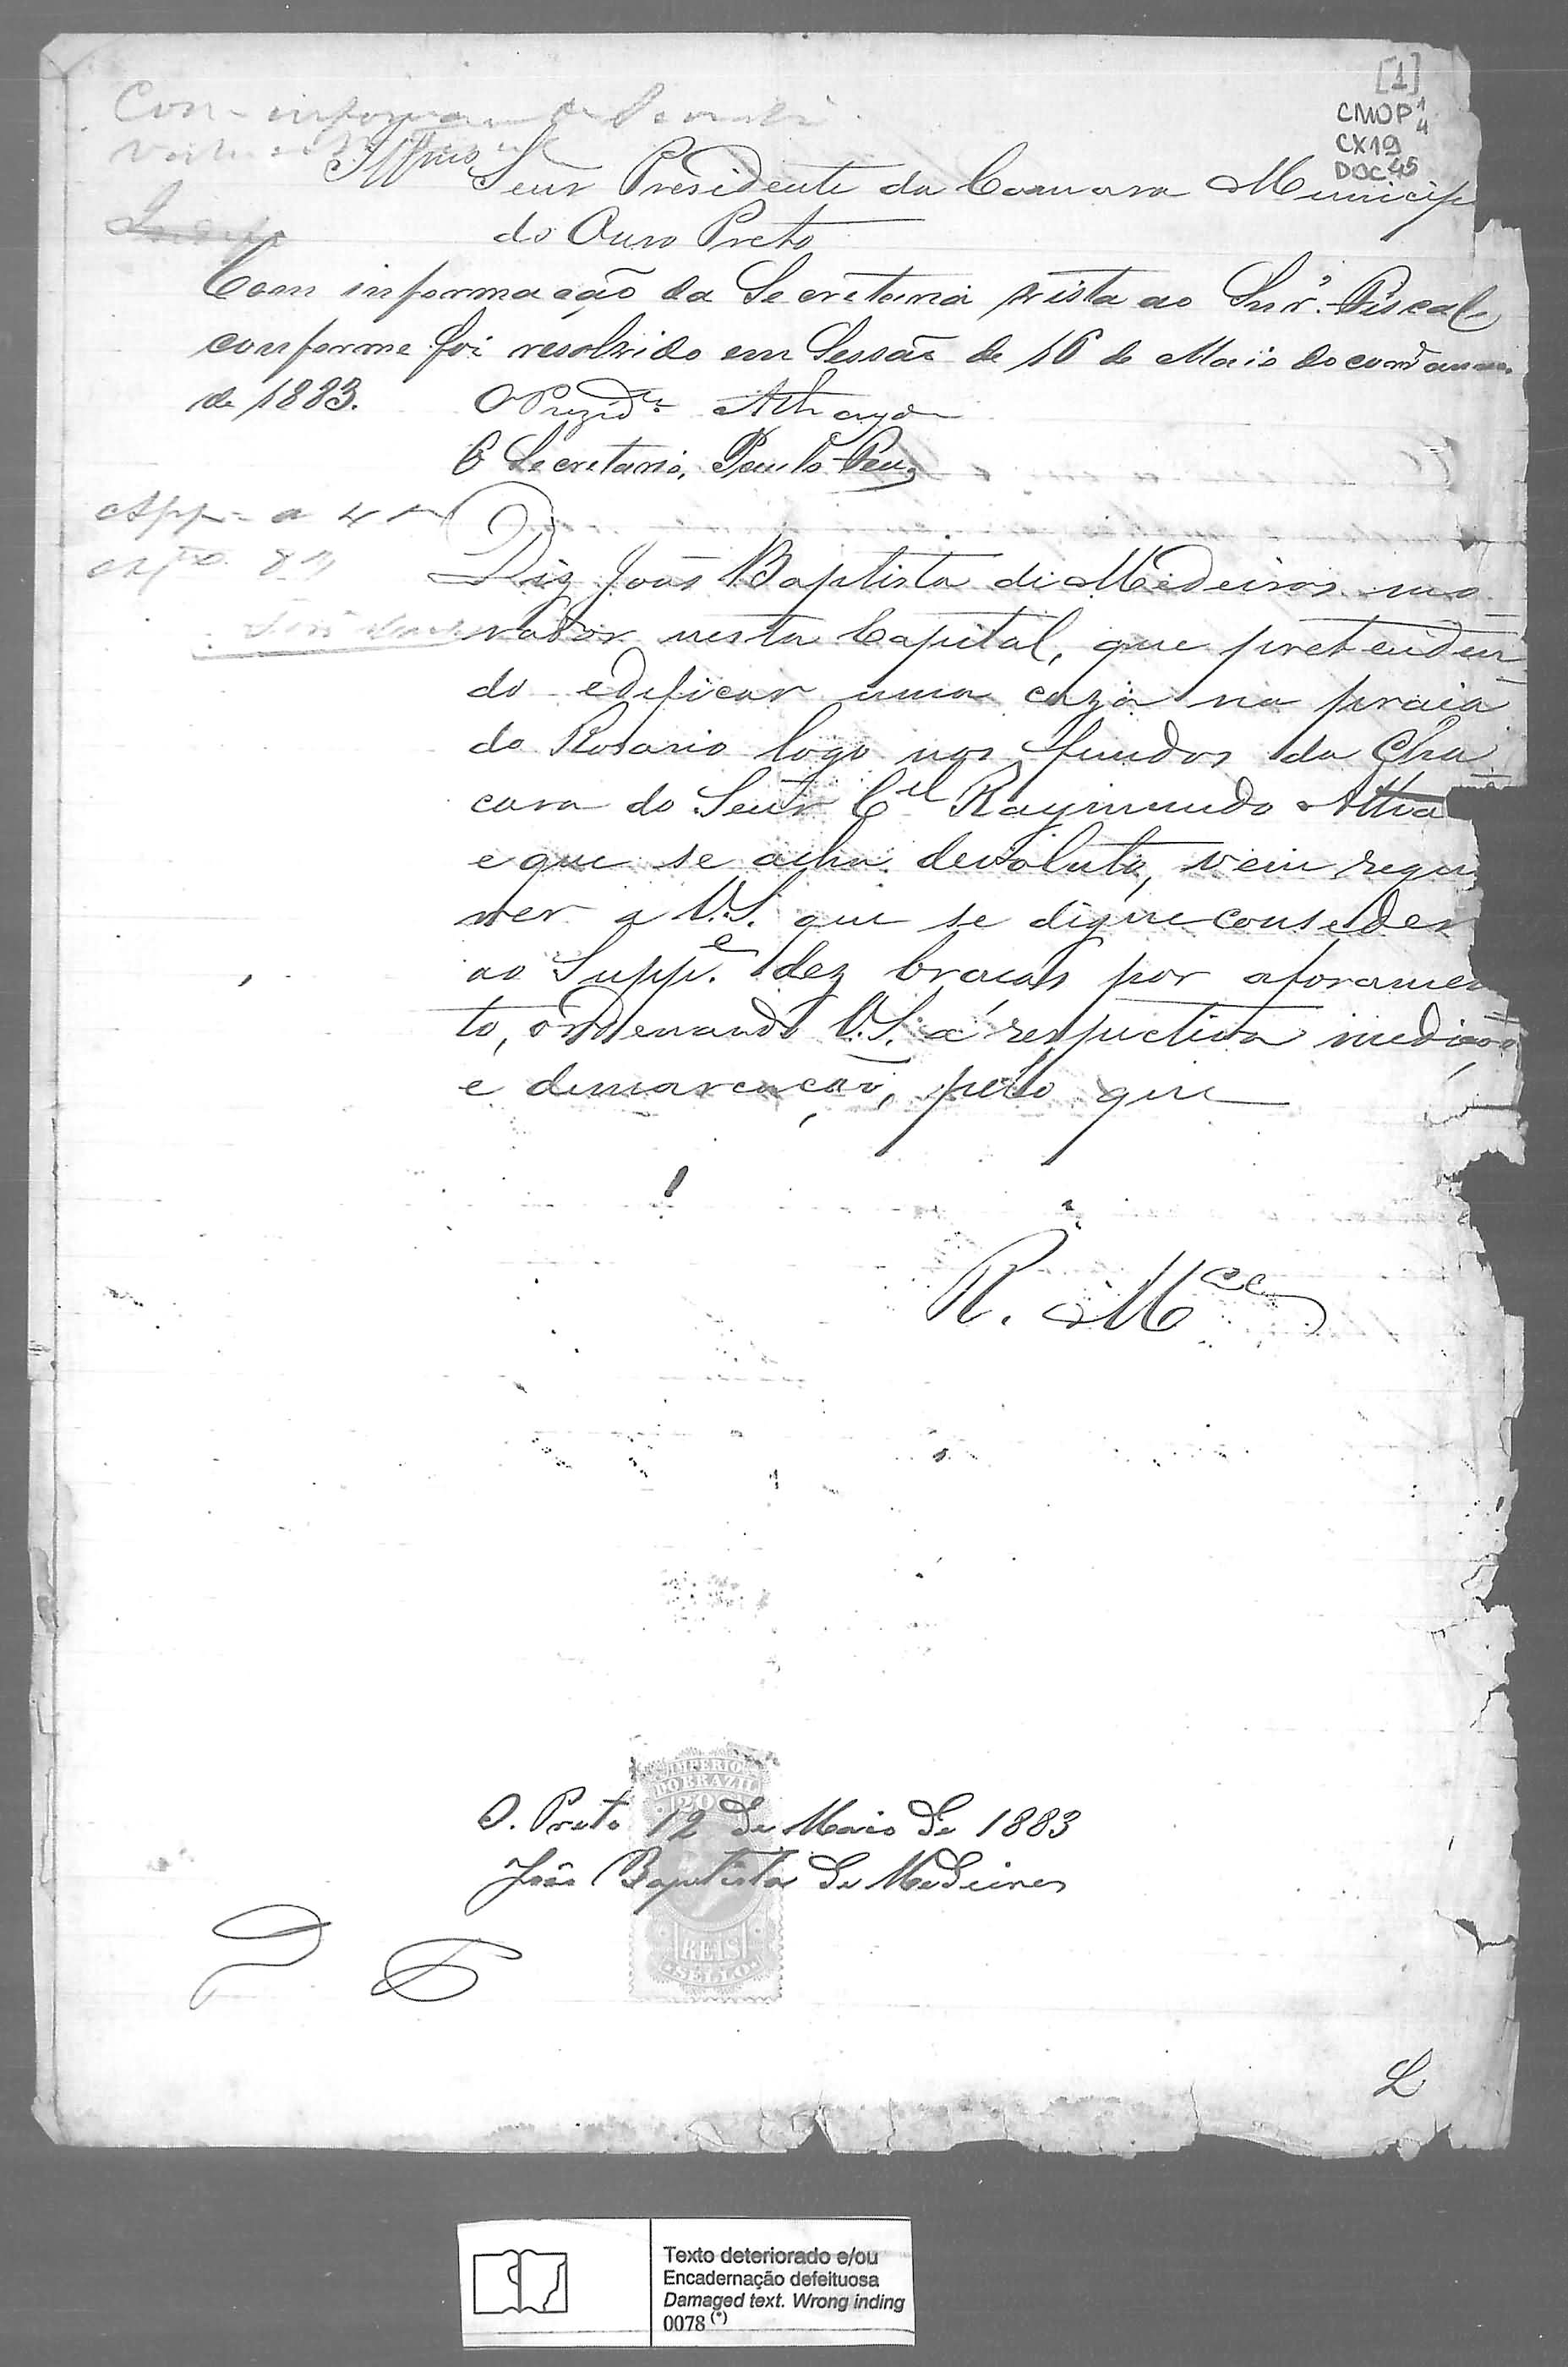 [1]
CMOP 1/4
CX19
DOC 45
Com informa
Illmo Senr Presidente da Camara Municip
do Ouro Preto
Com informação da Secretaria vista ao Snr. Fiscal
conforme foi resolvido em Sessão de 16 de Maio do
de 1883.
O Prezide. Athayde
O Secretario, Paulo
App
Diz João Baptista de Medeiros mo-
rador nesta Capital, que pretenden-
do edificar uma caza na praia
do Rosario logo nos fundos da Cha-
cara do Senr Cel Raymundo
e que se acha devoluto, vem reque
rer a V.S. que se digne conseder
ao Suppe. dez bracas por aforamen
to, ordenando V.S. a respectiva medição
e demarcação, pello que
R. Mce
O. Preto 12 de Maio de 1883
João Baptista de Medeiros
IMPERIO
DO BRAZIL
200
REIS
SELLO
Texto deteriorado e/ou
Encadernação defeituosa
Damaged text. Wrong inding
0078 (*)